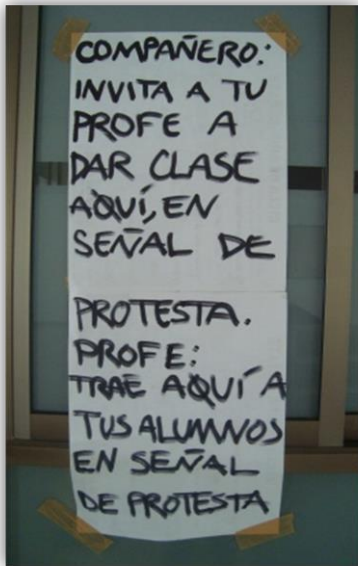 COMPAÑERO:
INVITA A TU
PROFE A
DAR CLASE
AQUÍ, EN
SEÑAL DE
PROTESTA.
PROFE:
TRAE AQUÍ A
TUS ALUMNOS
EN SEÑAL
DE PROTESTA